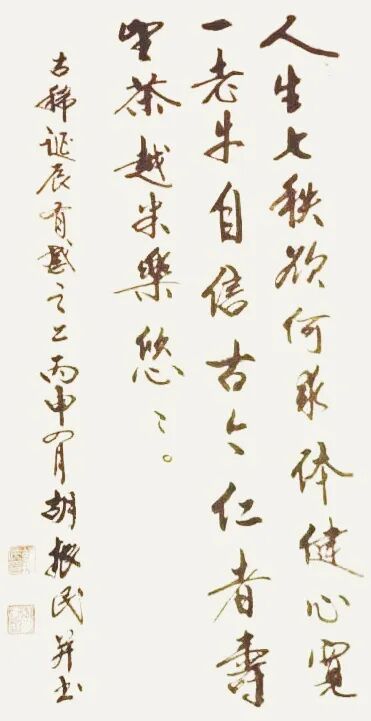 人生七秩欲何求体健心寬
一老牛自信古今仁者壽
望茶越米樂悠〻。
古稀誕辰有感之二丙申四月胡振民并书